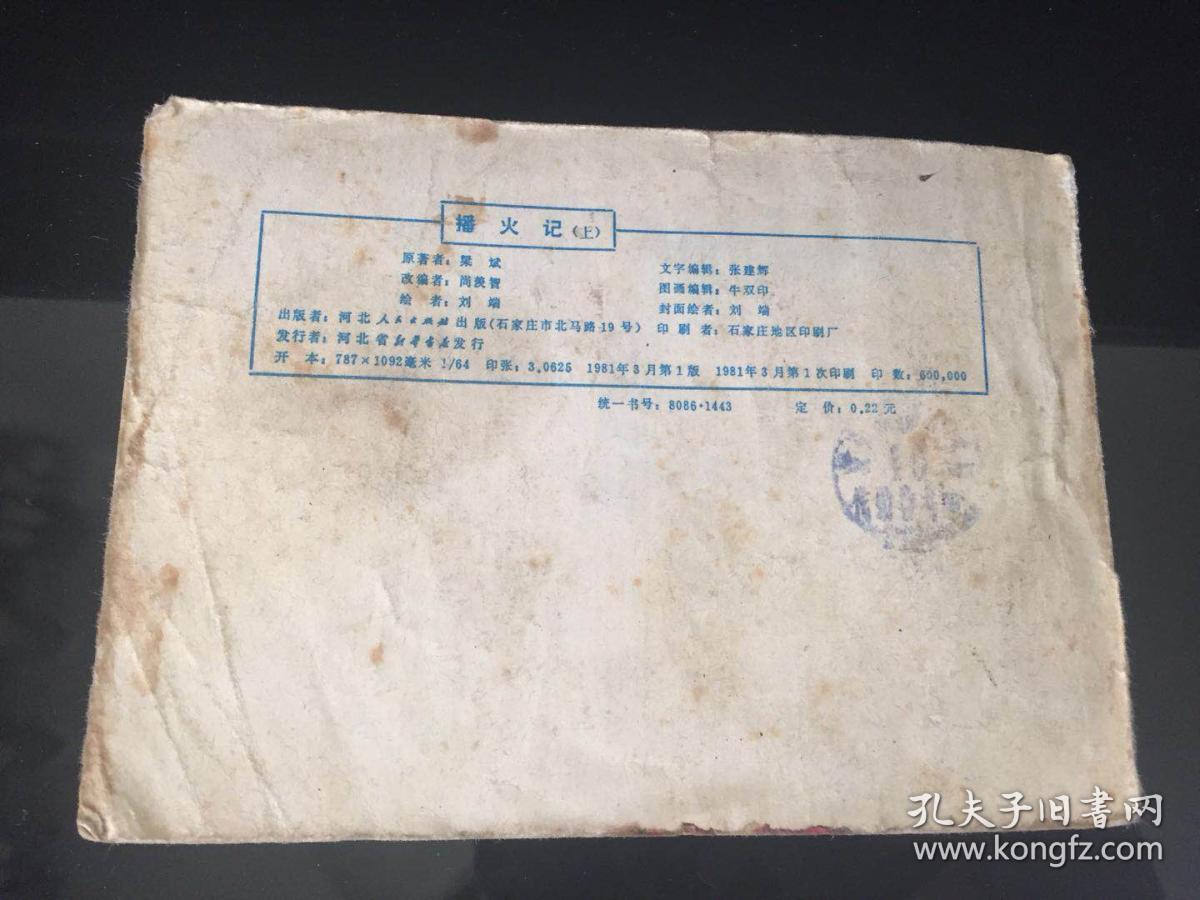 播火记(上)
原著者：梁斌
文字编辑：张建辉
改编者：尚羡智
图画编辑：牛双印
绘者：刘端
封面绘者：刘端
出版者：河北人民出版社出版(石家庄市北马路19号)
印刷者：石家庄地区印刷厂
发行者：河北省新华书店发行
开本：787×1092毫米 1/64 印张：3.0625 1981年3月第1版 1981年3月第1次印刷 印数：600,000
统一书号：8086·1443 定价：0.22元
孔夫子旧書网
www.kongfz.com